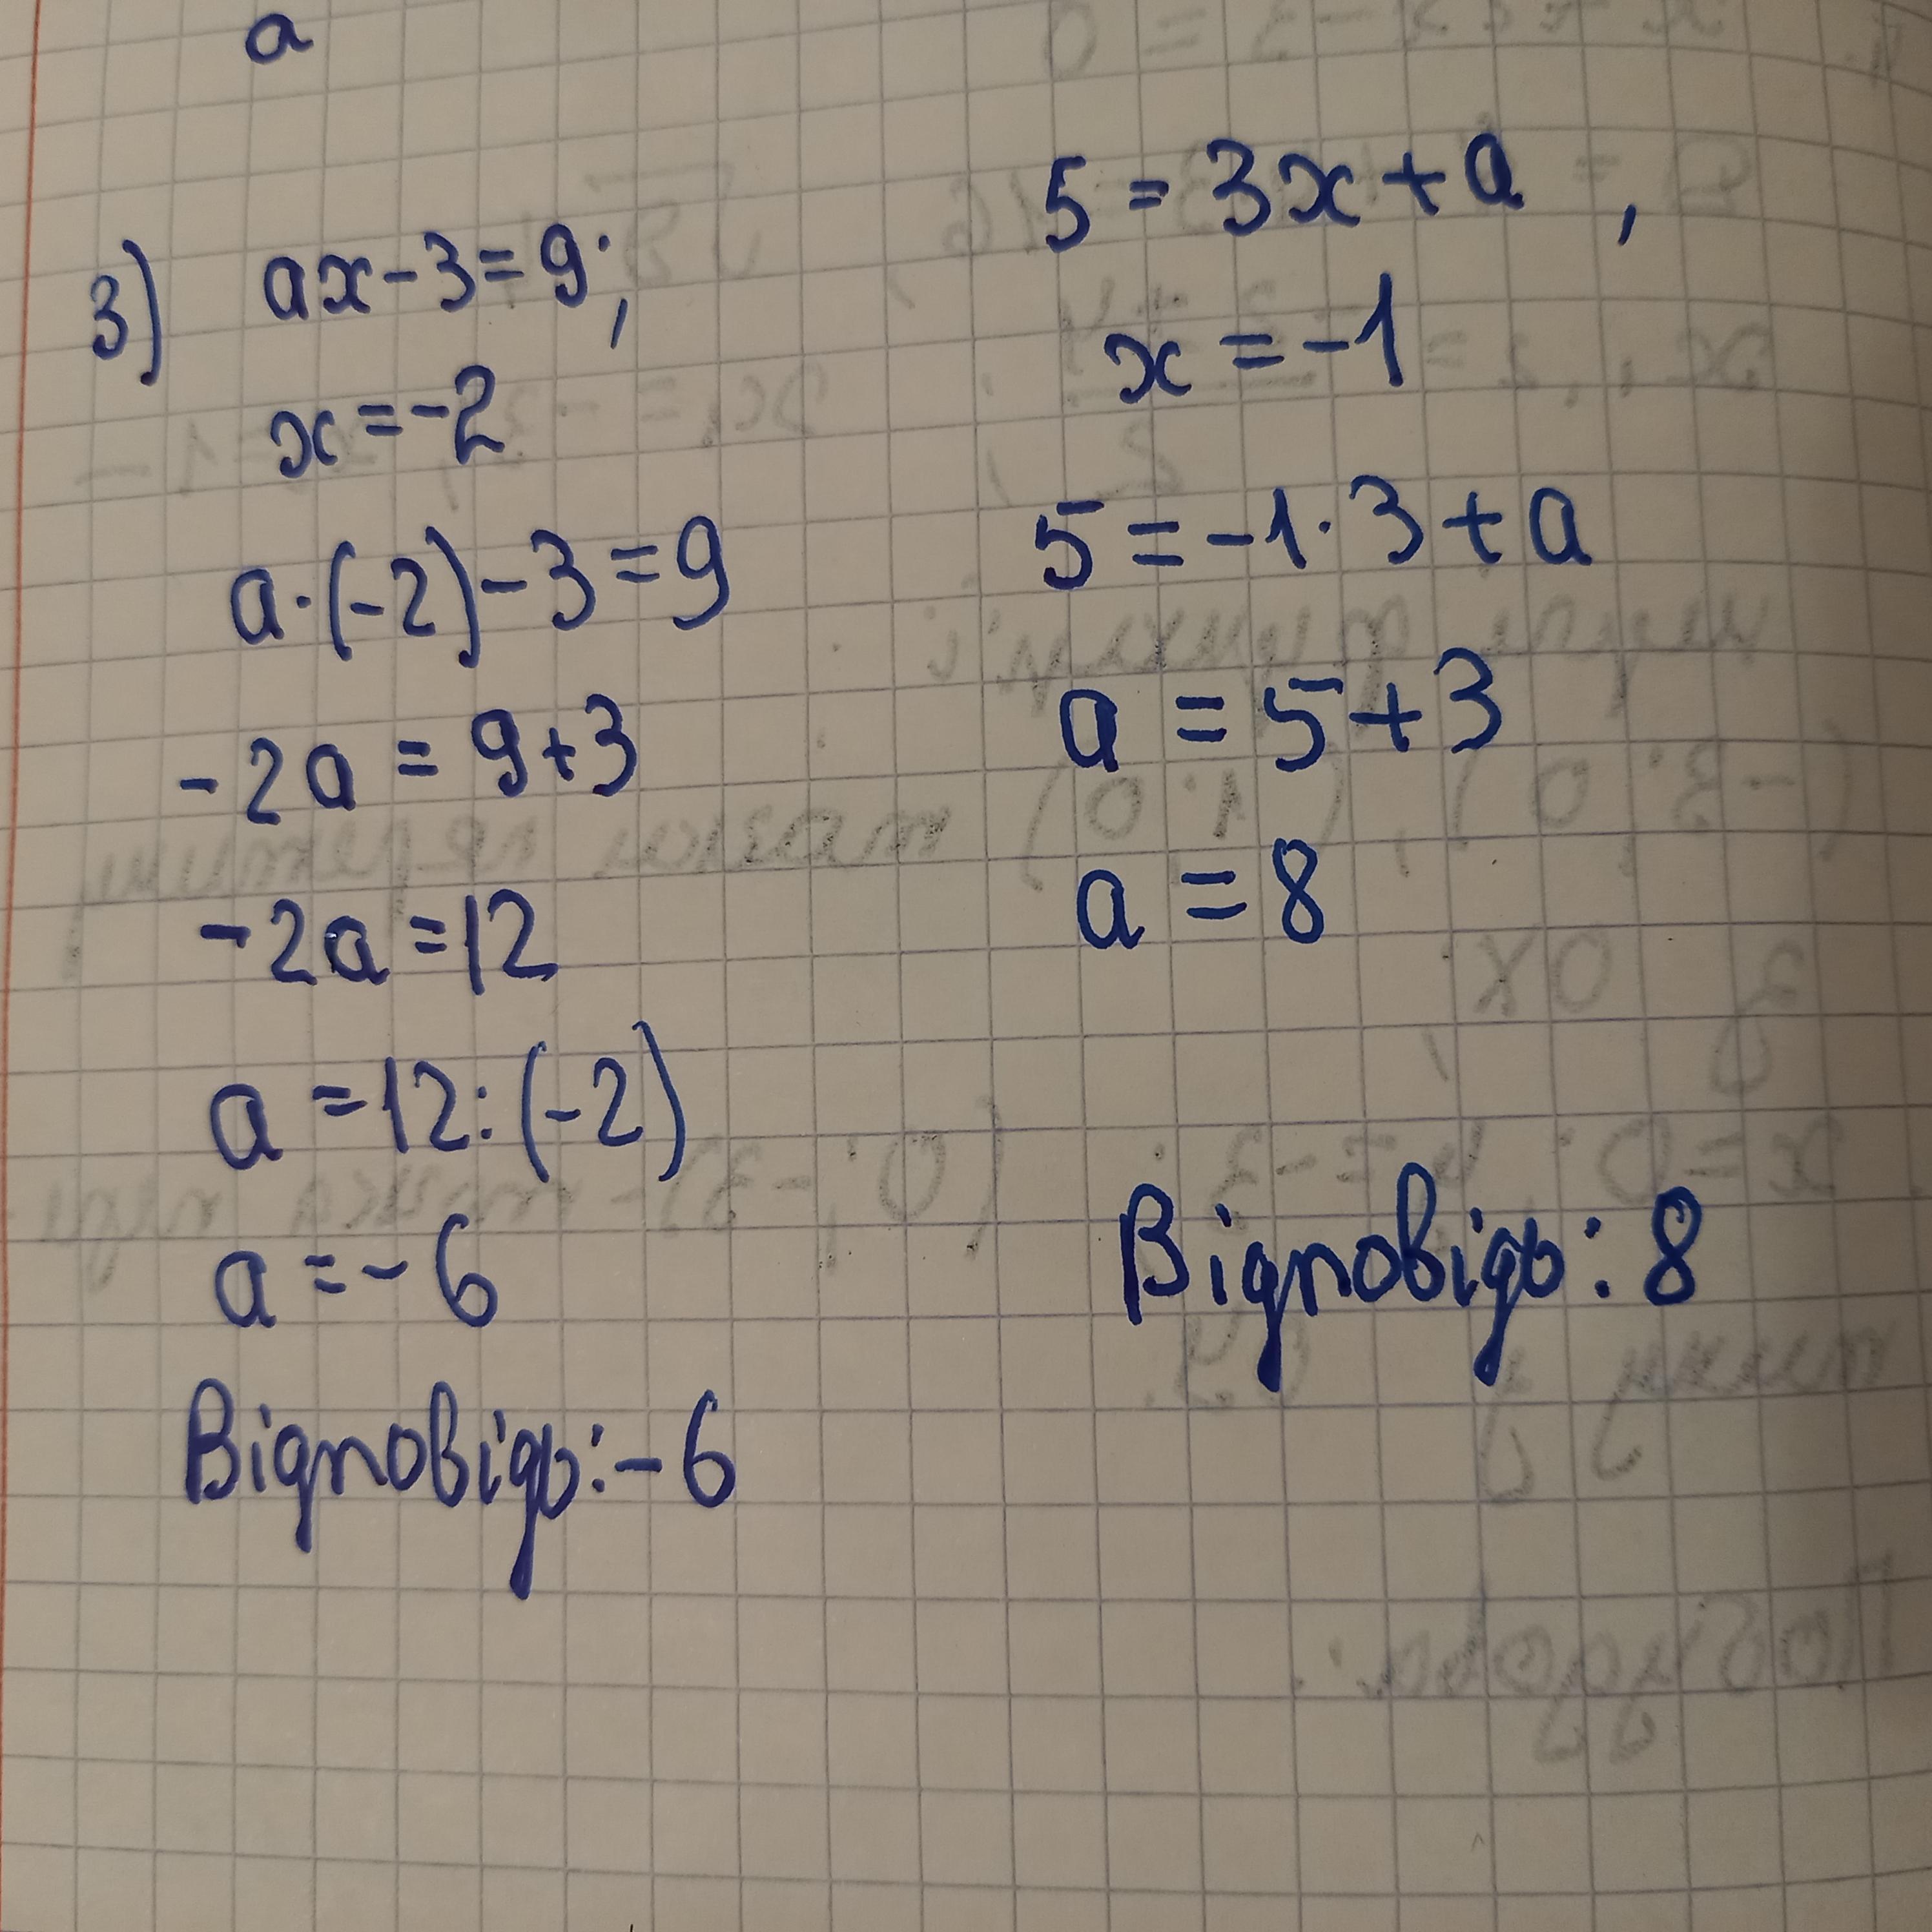 a
3) ax-3=9;
x=-2
a·(-2)-3=9
-2a = 9+3
-2a=12
a =12:(-2)
a =-6
Відповідь:-6
5=3x+a,
x=-1
5=-1·3+a
a=5+3
a=8
Відповідь: 8